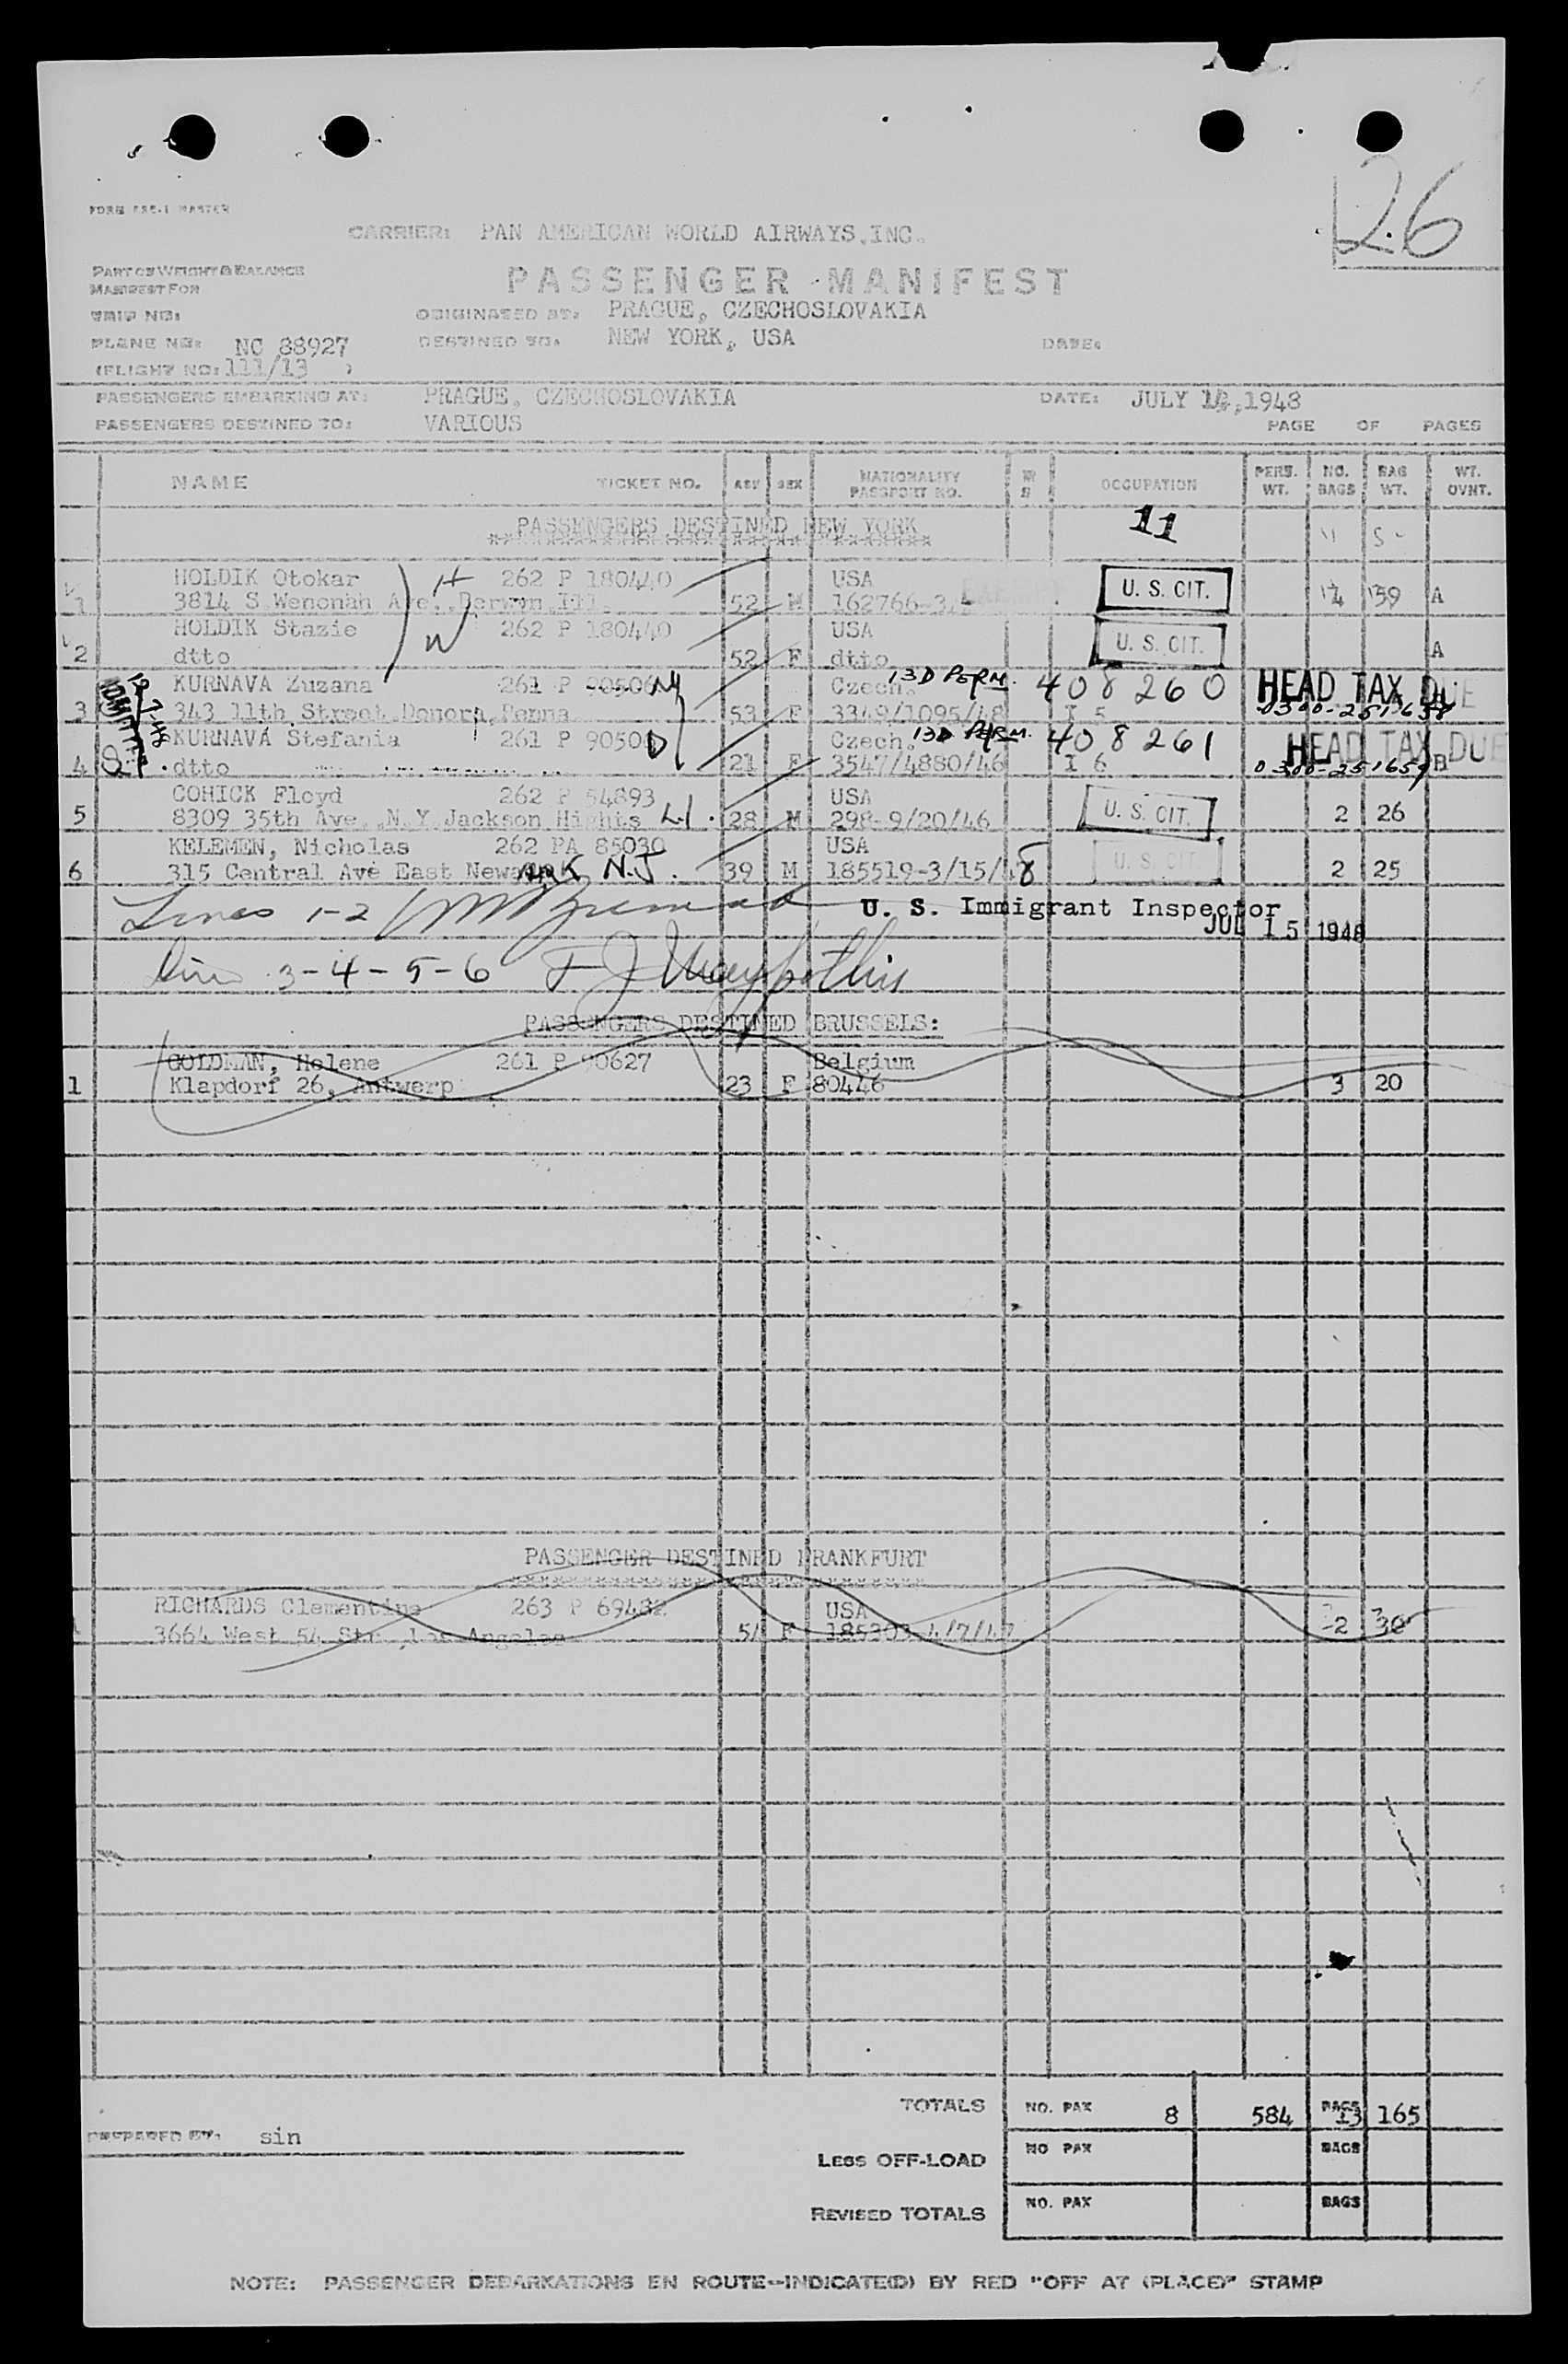 26
FORM MASTER
CARRIER: PAN AMERICAN WORLD AIRWAYS, INC.
PART OF WEIGHT & BALANCE
MANIFEST FOR
PASSENGER MANIFEST
TRIP NO:
ORIGINATED AT: PRAGUE, CZECHOSLOVAKIA
PLANE NO: NC 88927
DESTINED TO: NEW YORK, USA
DATE:
(FLIGHT NO: 111/13 )
PASSENGERS EMBARKING AT: PRAGUE, CZECHOSLOVAKIA
DATE: JULY 14, 1948
PASSENGERS DESTINED TO: VARIOUS
PAGE OF PAGES
NAME TICKET NO. SEX NATIONALITY PASSPORT NO. OCCUPATION PERS. WT. NO. BAGS BAG WT. WT. OVNT.
PASSENGERS DESTINED NEW YORK
11
HOLDIK Otokar H 262 P 180440 USA U. S. CIT.
1 3814 S.Wenonah Ave.,Berwyn,Ill. 52 M 162766 A
HOLDIK Stazie W 262 P 180440 USA U. S. CIT.
2 dtto 52 F dtto A
KURNAVA Zuzana 261 P 90506 Czech. 13D PERM. 408260 HEAD TAX DUE
3 343 11th Street,Donora,Penna 53 F 3349/1095/48 I 5 0300-251658
KURNAVÁ Stefania 261 P 90506 Czech. 13D PERM. 408261 HEAD TAX DUE
4 dtto 21 F 3547/4880/46 I 6 0300-251659 B
COHICK Floyd 262 P 54893 USA U. S. CIT.
5 8309 35th Ave.,N.Y.Jackson Hights L.I. 28 M 298-9/20/46 2 26
KELEMEN, Nicholas 262 PA 85030 USA U. S. CIT.
6 315 Central Ave East Newark N.J. 39 M 185519-3/15/48 2 25
Lines 1-2 U. S. Immigrant Inspector
JUL 15 1948
Lines 3-4-5-6
PASSENGERS DESTINED BRUSSELS:
GOLDMAN, Helene 261 P 90627 Belgium
1 Klapdorf 26, Antwerp 23 F 80446 3 20
PASSENGER DESTINED FRANKFURT
RICHARDS Clementine 263 P 69482 USA
3664 West 54 Str.,Los Angeles F 2 30
TOTALS NO. PAX 8 584 BAGS 13 165
PREPARED BY: sin
LESS OFF-LOAD NO PAX BAGS
REVISED TOTALS NO. PAX BAGS
NOTE: PASSENGER DEBARKATIONS EN ROUTE--INDICATE(D) BY RED "OFF AT (PLACE)" STAMP